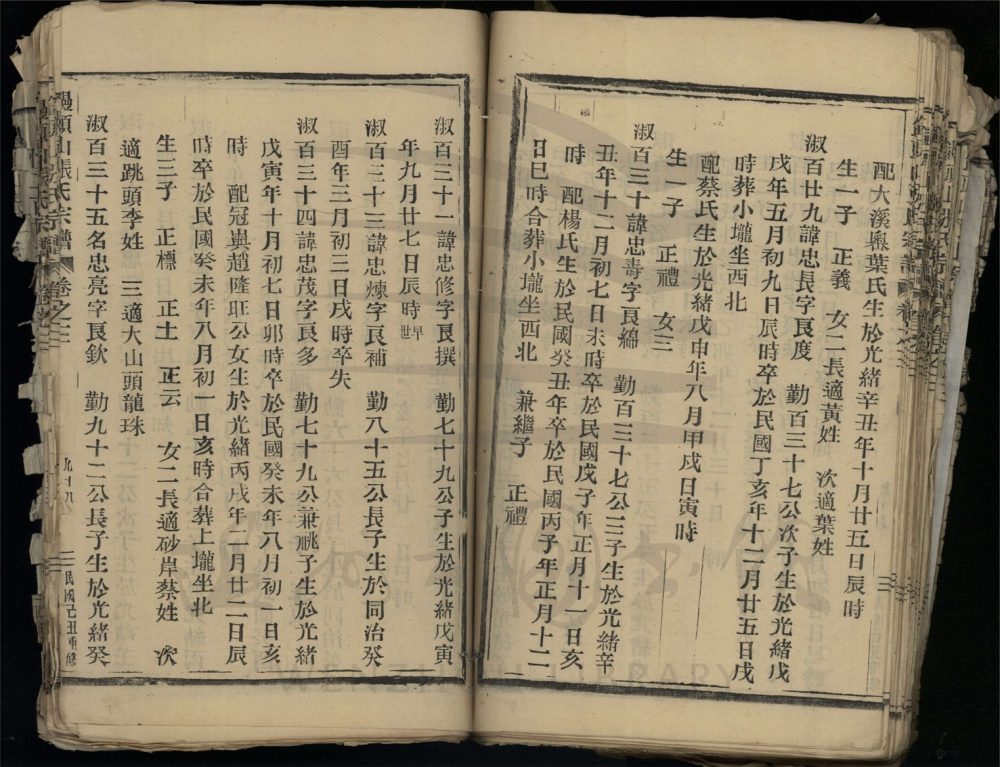 配大溪輿葉氏生於光緒辛丑年十月廿五日辰時
生一子　正義　女二長適黃姓　次適葉姓
淑百廿九諱忠長字良度　勤百三十七公次子生於光緒戊
戌年五月初九日辰時卒於民國丁亥年十二月廿五日戌
時葬小壠坐西北
配蔡氏生於光緒戊申年八月甲戌日寅時
生一子　正禮　女三
淑百三十諱忠壽字良綿　勤百三十七公三子生於光緒辛
丑年十二月初七日未時卒於民國戊子年正月十一日亥
時　配楊氏生於民國癸丑年卒於民國丙子年正月十二
日巳時合葬小壠坐西北　兼繼子　正禮
淑百三十一諱忠修字良撰　勤七十九公子生於光緒戊寅
年九月廿七日辰時早世
淑百三十三諱忠煉字良補　勤八十五公長子生於同治癸
酉年三月初三日戌時卒失
淑百三十四諱忠茂字良多　勤七十九公兼祧子生於光緒
戊寅年十月初七日卯時卒於民國癸未年八月初一日亥
時　配冠輿趙隆旺公女生於光緒丙戌年二月廿二日辰
時卒於民國癸未年八月初一日亥時合葬上壠坐北
生三子　正標　正土　正云　女二長適砂岸蔡姓　次
適跳頭李姓　三適大山頭龍珠
淑百三十五名忠亮字良欽　勤九十二公長子生於光緒癸
頭山張氏宗譜　卷之三　九十八　民國己丑重修
WENZHOU LIBRARY